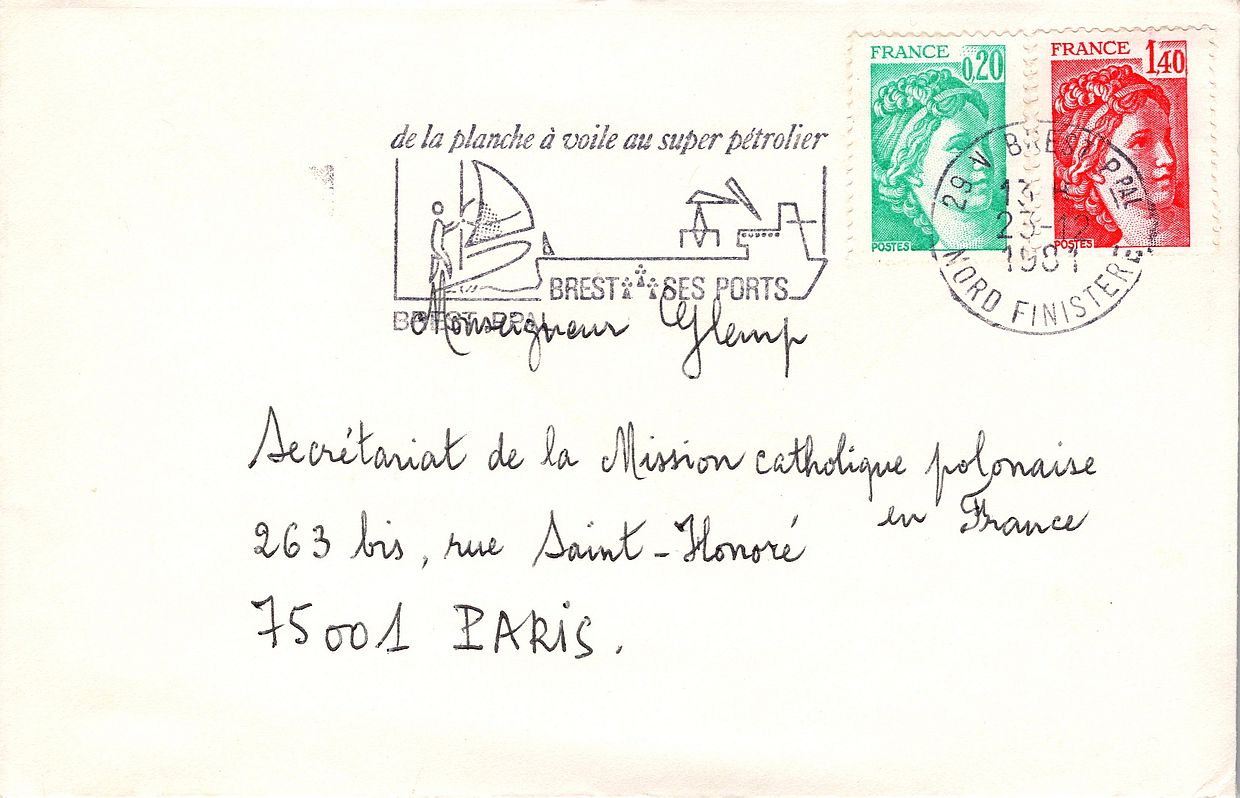 FRANCE 0,20
POSTES
FRANCE 1,40
POSTES
29 V BREST PPAL
13 H
23-12
1981
NORD FINISTERE
de la planche à voile au super pétrolier
BREST SES PORTS
BREST PPAL
Monseigneur Glemp
Secrétariat de la Mission catholique polonaise
en France
263 bis, rue Saint-Honoré
75001 PARIS.